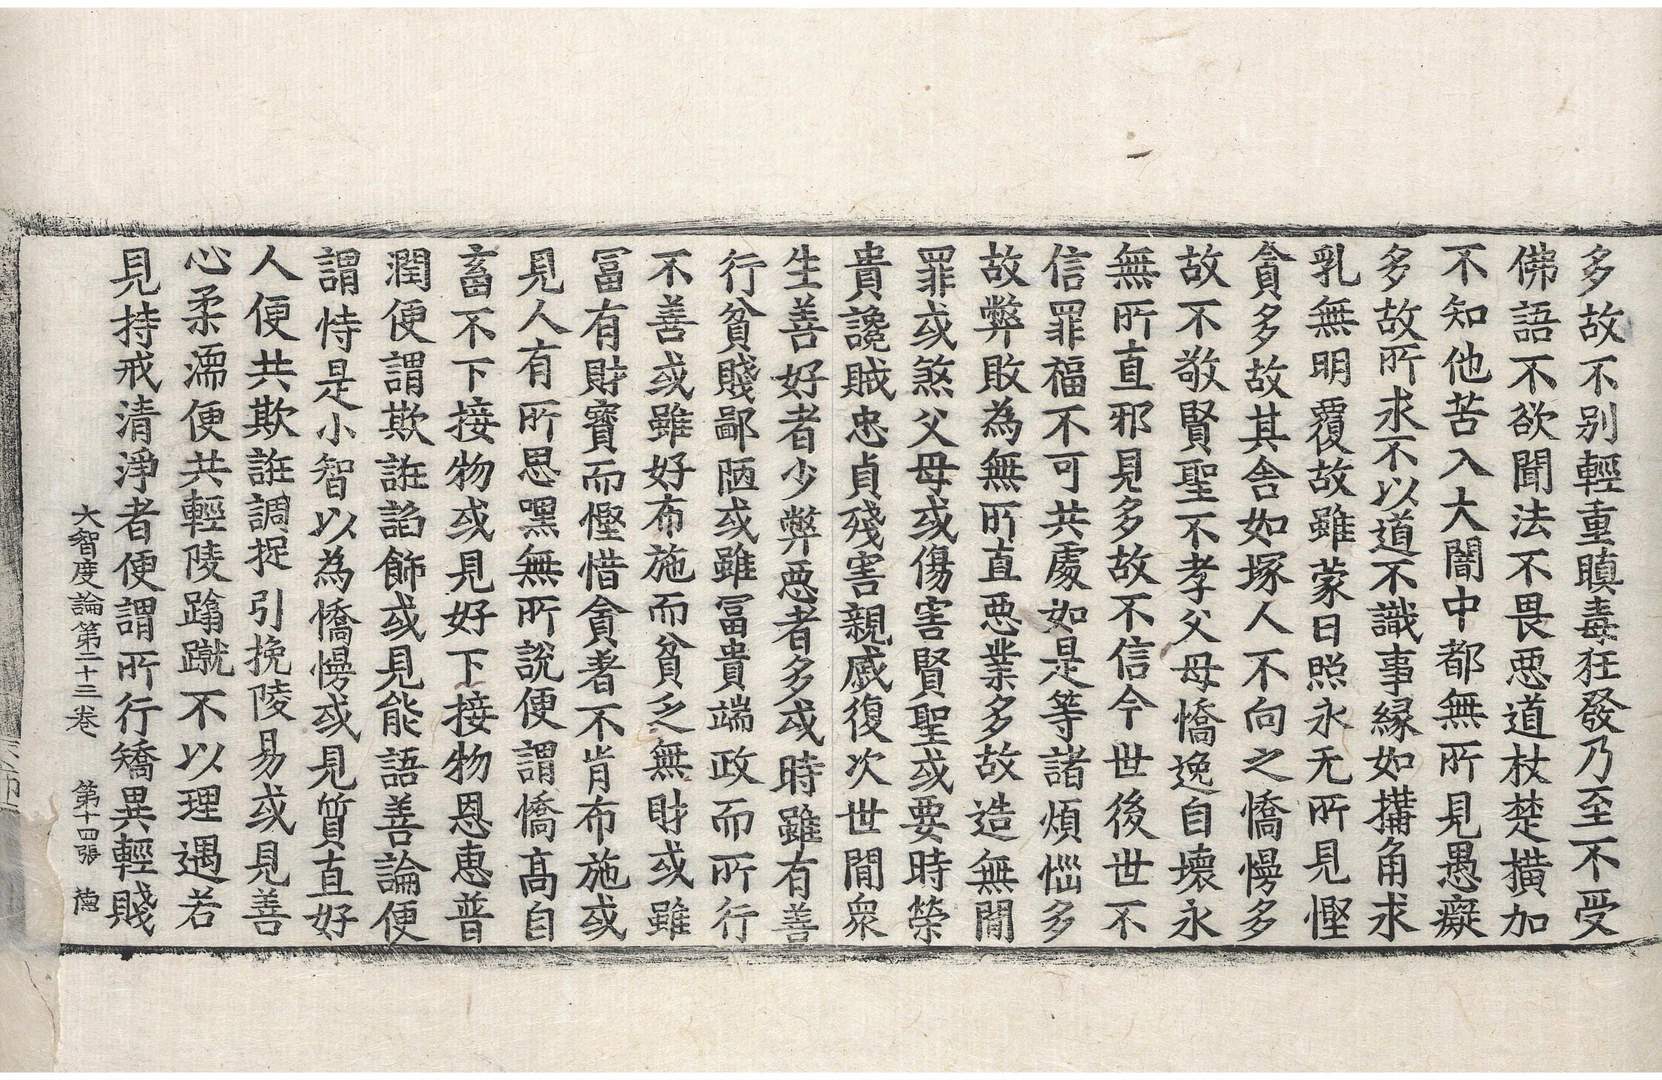 多故不別輕重瞋毒狂發乃至不受
佛語不欲聞法不畏惡道杖楚撗加
不知他苦入大闇中都無所見愚癡
多故所求不以道不識事緣如搆角求
乳無明覆故雖蒙日照永无所見慳
貪多故其舍如塚人不向之憍慢多
故不敬賢聖不孝父母憍逸自壞永
無所直邪見多故不信今世後世不
信罪福不可共處如是等諸煩惱多
故弊敗為無所直惡業多故造無閒
罪或煞父母或傷害賢聖或要時榮
貴讒賊忠貞殘害親戚復次世閒眾
生善好者少弊惡者多或時雖有善
行貧賤鄙陋或雖冨貴端政而所行
不善或雖好布施而貧乏無財或雖
冨有財寶而慳惜貪著不肯布施或
見人有所思嘿無所說便謂憍高自
畜不下接物或見好下接物恩惠普
潤便謂欺誑諂飾或見能語善論便
謂恃是小智以為憍慢或見質直好
人便共欺誑調捉引挽陵易或見善
心柔濡便共輕陵蹹蹴不以理遇若
見持戒清淨者便謂所行矯異輕賤
大智度論第二十三卷 第十四張 德